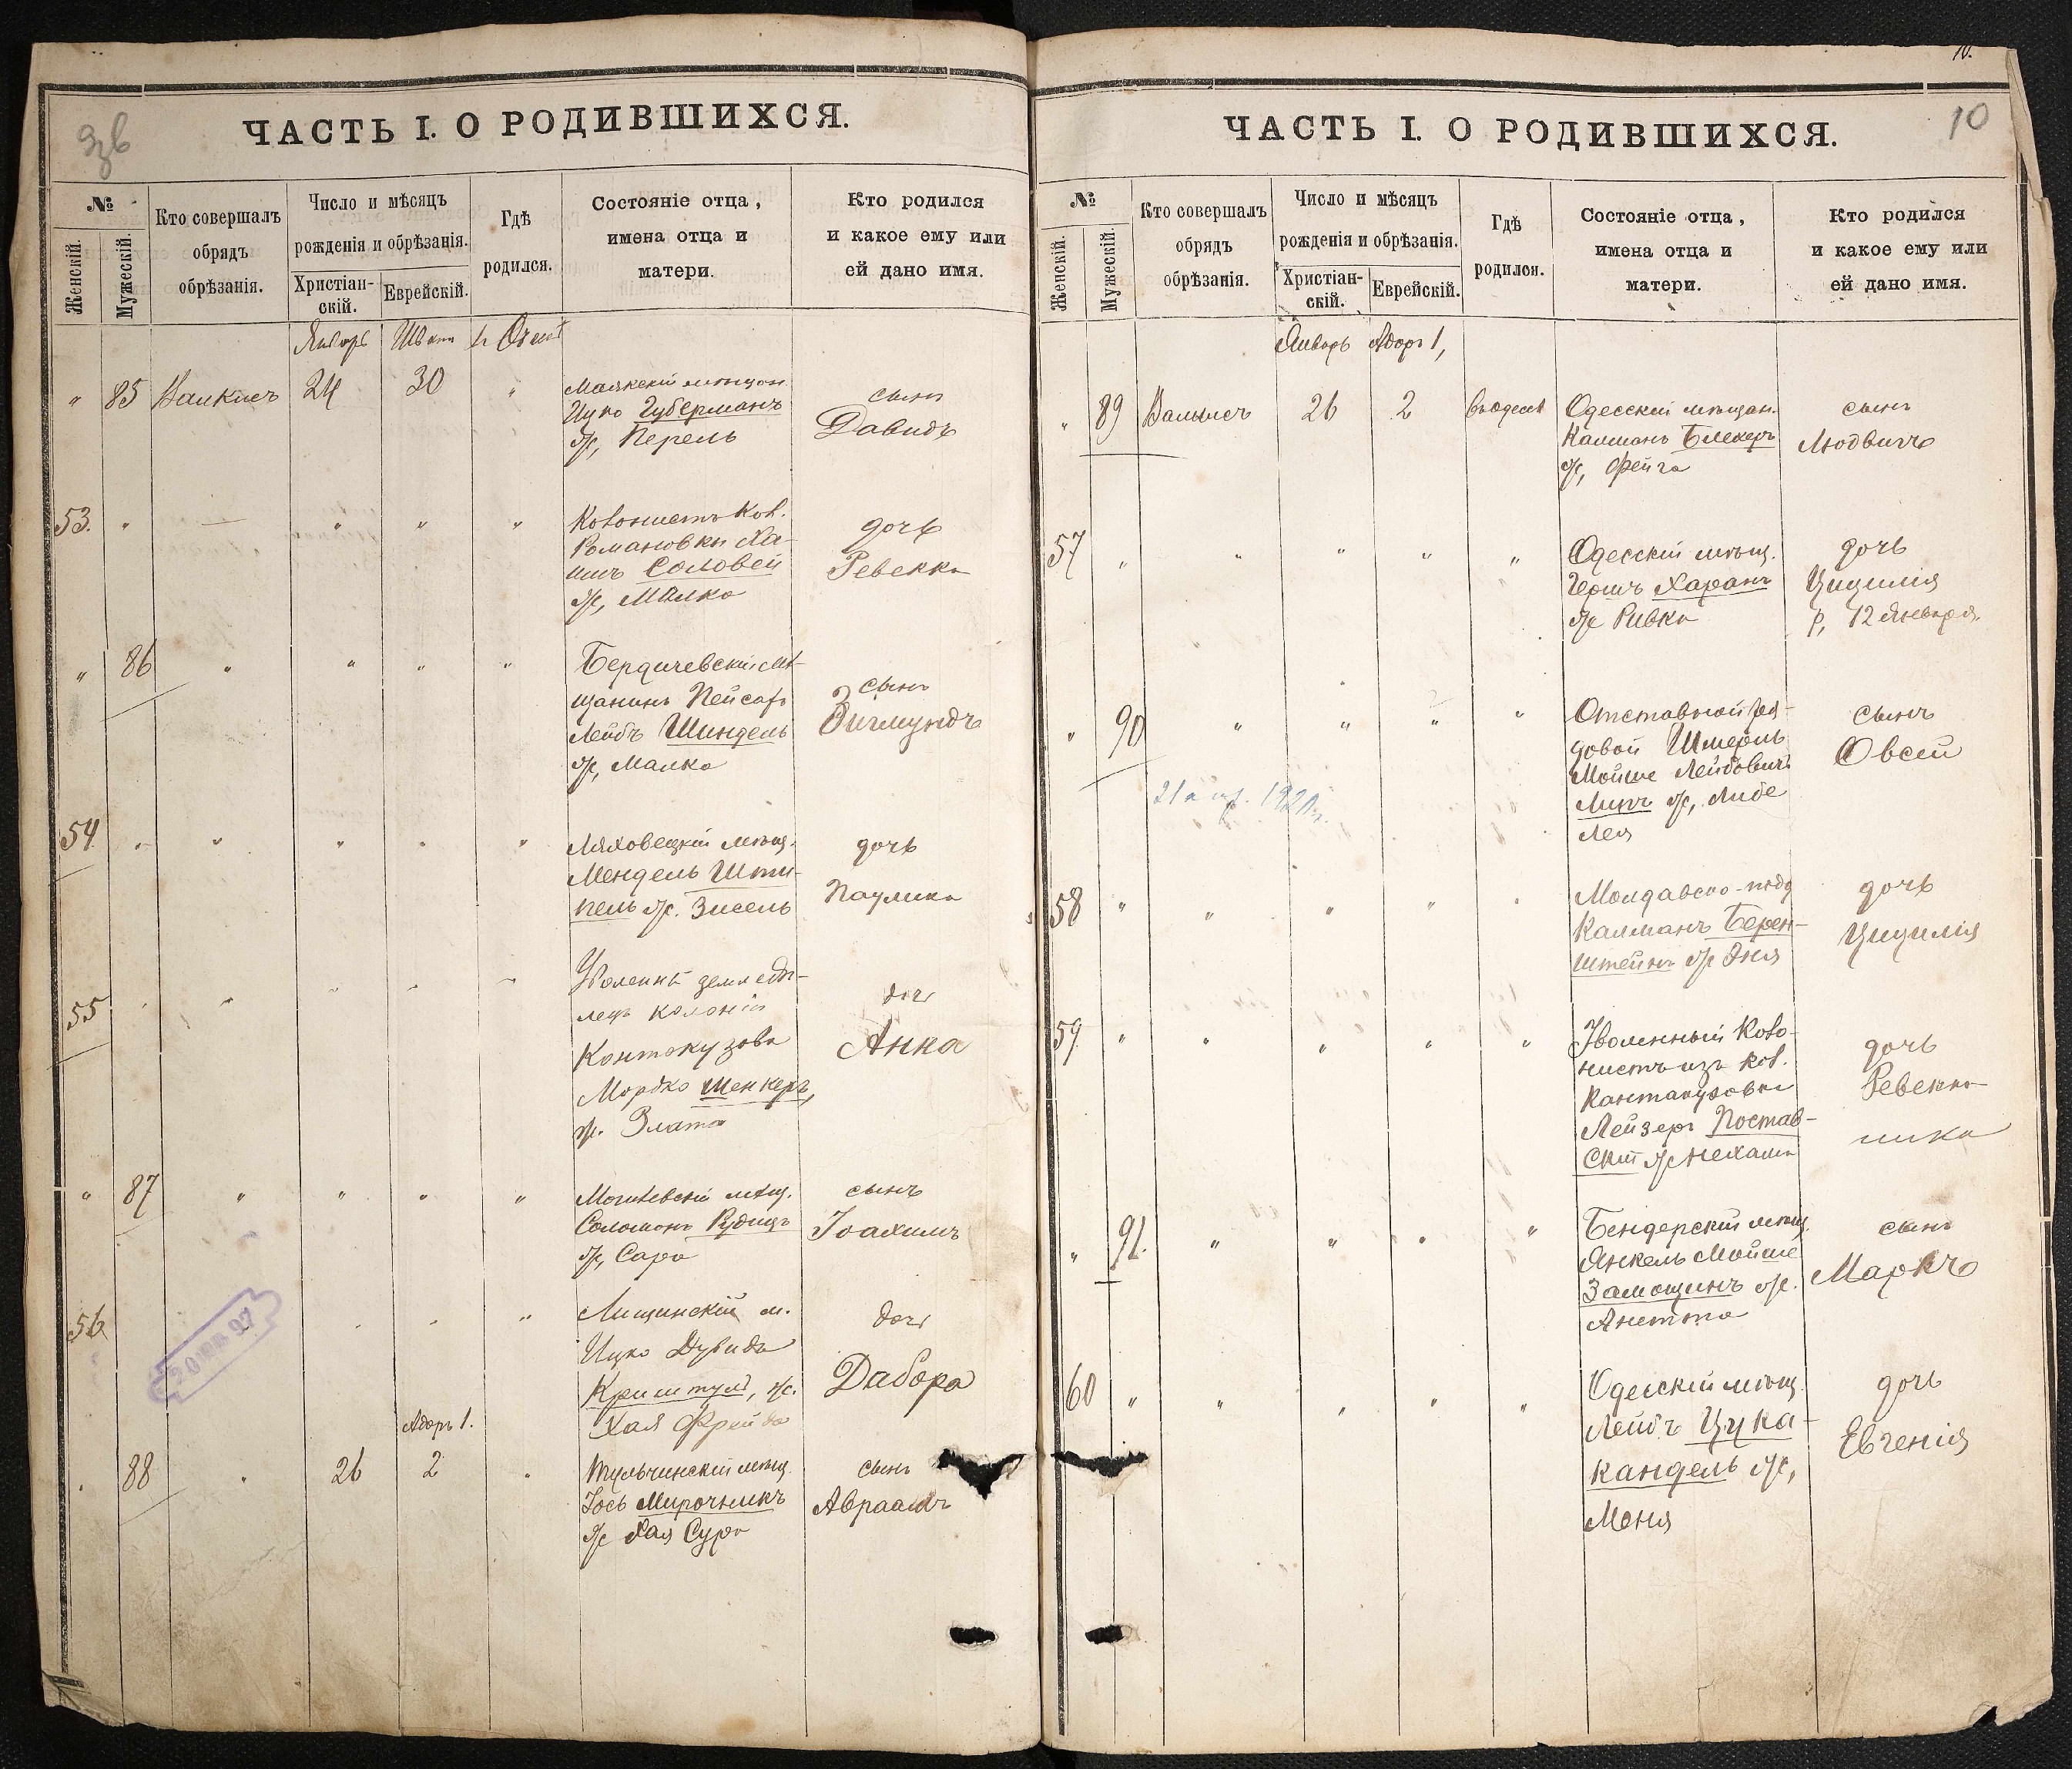 ЧАСТЬ I. О РОДИВШИХСЯ.
№
Женскій.
Мужескій.
Кто совершалъ
обрядъ
обрѣзанія.
Число и мѣсяцъ
рожденія и обрѣзанія.
Христіан-
скій.
Еврейскій.
Гдѣ
родился.
Состояніе отца,
имена отца и
матери.
Кто родился
и какое ему или
ей дано имя.
Январь
" 85 24 30 "
Маякскій мѣщан.
Ицко Губерманъ
ж, Перель
сынъ
Давидъ
53. " — " " "
Колонистъ Кол.
Романовки Ха-
имъ Соловей
ж, Малка
дочь
Ревекка
" 86 " " " "
Бердичевскій мѣ-
щанинъ Пейсахъ
Лейбъ Шиндель
ж, Малка
сынъ
Зигмундъ
54. " " " " "
Ляховецкій мѣщ.
Мендель Шти-
пель ж. Зисель
дочь
Паулина
55 " " " " "
земледѣ-
лецъ колоніи
Контокузова
Мордко Шенкеръ,
ж. Злата
дочь
Анна
" 87 " " " "
Могилевскій мѣщ.
Соломонъ Рудицъ
ж, Сара
сынъ
Іоахимъ
56
м.
Ицко Дувидъ
Криштул, ж.
Хая Фрейда
дочь
Дабора
Адоръ 1.
" 88 " 26 2 "
Тульчинскій мѣщ.
Іось Мирочникъ
ж Хая Сура
сынъ
Авраамъ
10
ЧАСТЬ I. О РОДИВШИХСЯ.
№
Женскій.
Мужескій.
Кто совершалъ
обрядъ
обрѣзанія.
Число и мѣсяцъ
рожденія и обрѣзанія.
Христіан-
скій.
Еврейскій.
Гдѣ
родился.
Состояніе отца,
имена отца и
матери.
Кто родился
и какое ему или
ей дано имя.
Январь Адоръ 1,
" 89 26 2
Одесскій мѣщан.
Калманъ Блехеръ
ж, Фейга
сынъ
Людвигъ
57 " " " " "
Одесскій мѣщ.
Гершъ Харанъ
ж Ривка
дочь
Цицилія
р, 12 января.
" 90 " " " "
Отставной ря-
довой Шмерль
Мойше Лейбовичъ
Липъ ж, Либе
Лея
сынъ
Овсей
58 " " " " "
Калманъ Берен-
штейнъ ж Эня
дочь
Цицилія
59. " " " " "
Уволенный Коло-
нистъ изъ кол.
Кантакузовки
Лейзеръ Постав-
скій ж Нехама
дочь
Ревекка
" 91. " " " "
Бендерскій мѣщ.
Янкель Мойше
Замощинъ ж.
Анетта
сынъ
Маркъ
60 " " " " "
Одесскій мѣщ.
Лейбъ Цука-
кандель ж,
Меня
дочь
Евгенія